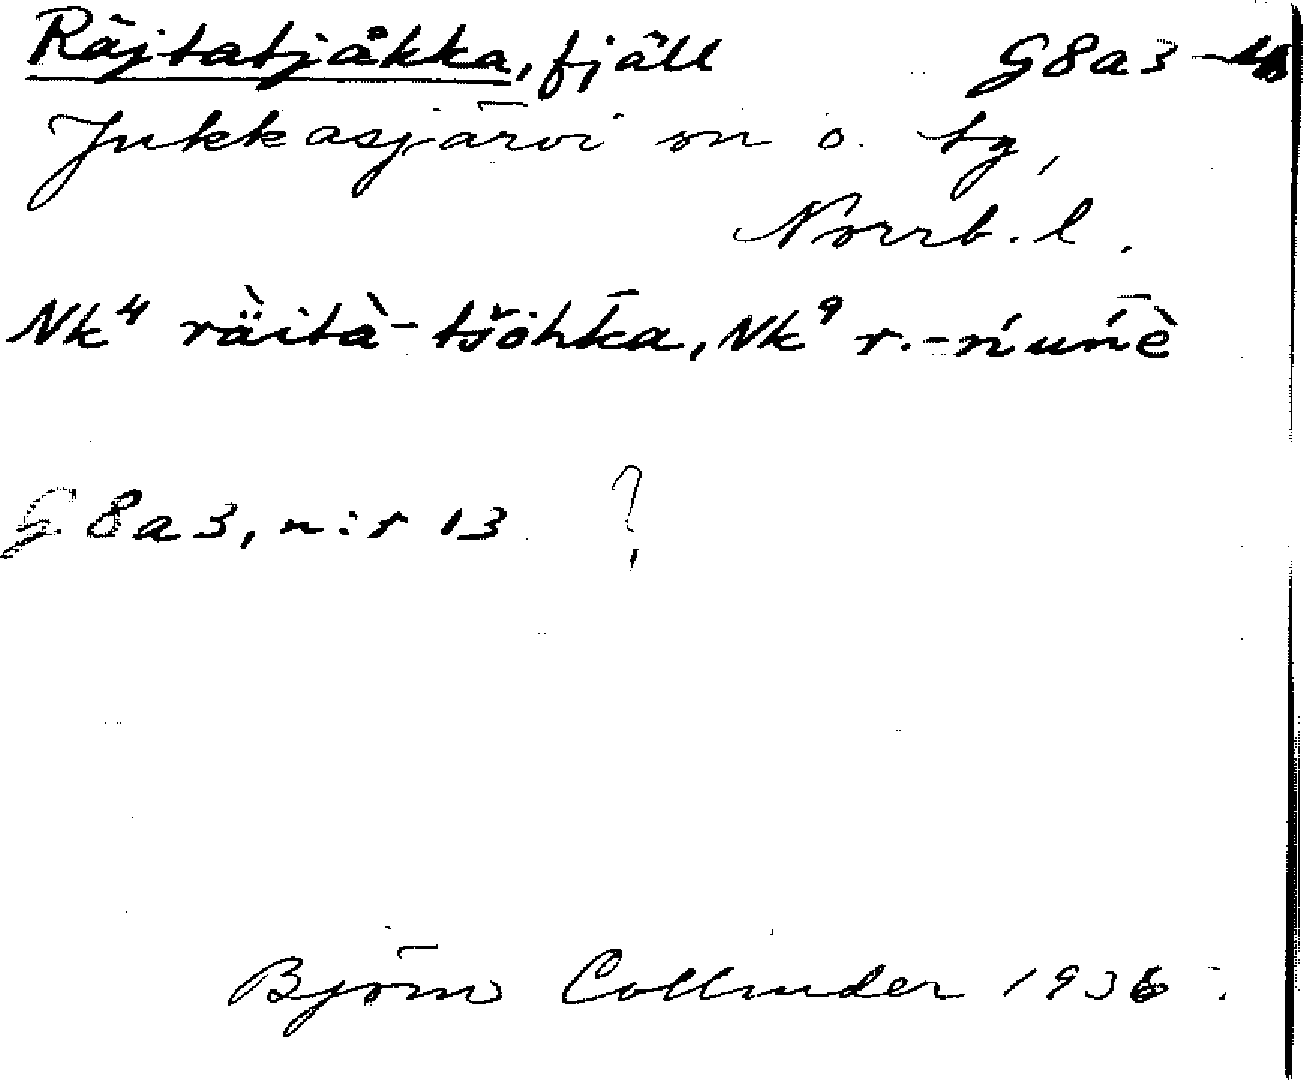 Räjtatjåkka, fjäll G8a3
Jukkasjärvi sn o. tg,
Norrb. l.
Nk⁴ räità-tšōhka, Nk⁹ r.-ńuńè
G8a3, n:r 13 ?
Björn Collinder 1936.